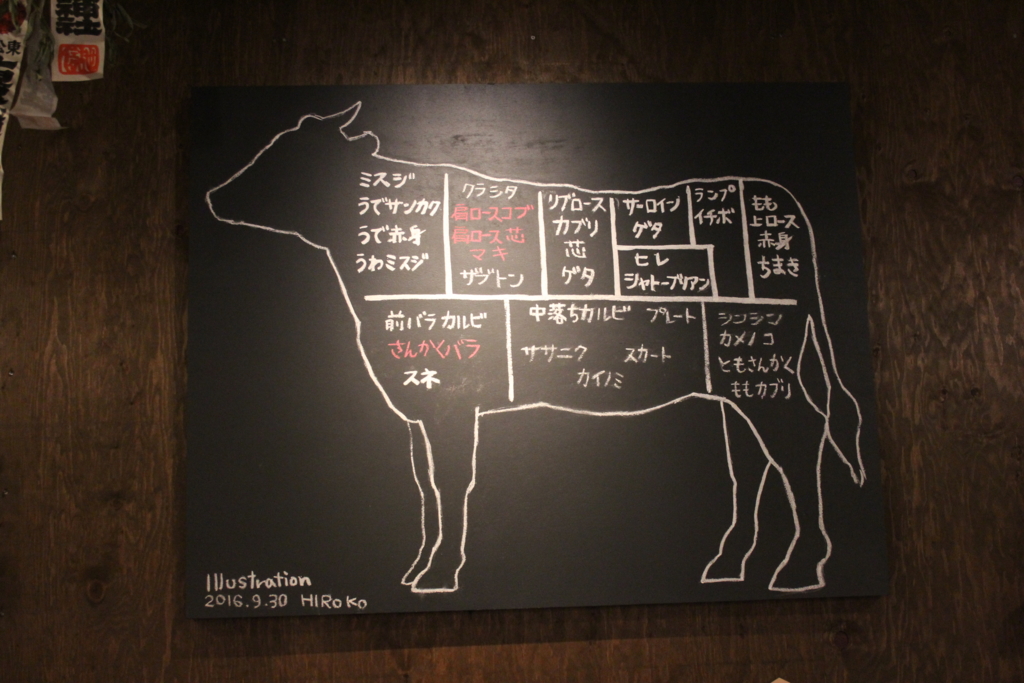 ミスジ
うでサンカク
うで赤身
うわミスジ
クラシタ
肩ロースコブ
肩ロース芯
マキ
ザブトン
リブロース
カブリ
芯
ゲタ
サーロイン
ゲタ
ヒレ
シャトーブリアン
ランプ
イチボ
もも
上ロース
赤身
ちまき
前バラカルビ
さんかくバラ
スネ
中落ちカルビ プレート
ササニク スカート
カイノミ
シンシン
カメノコ
ともさんかく
ももカブリ
Illustration
2016.9.30 HIROKO